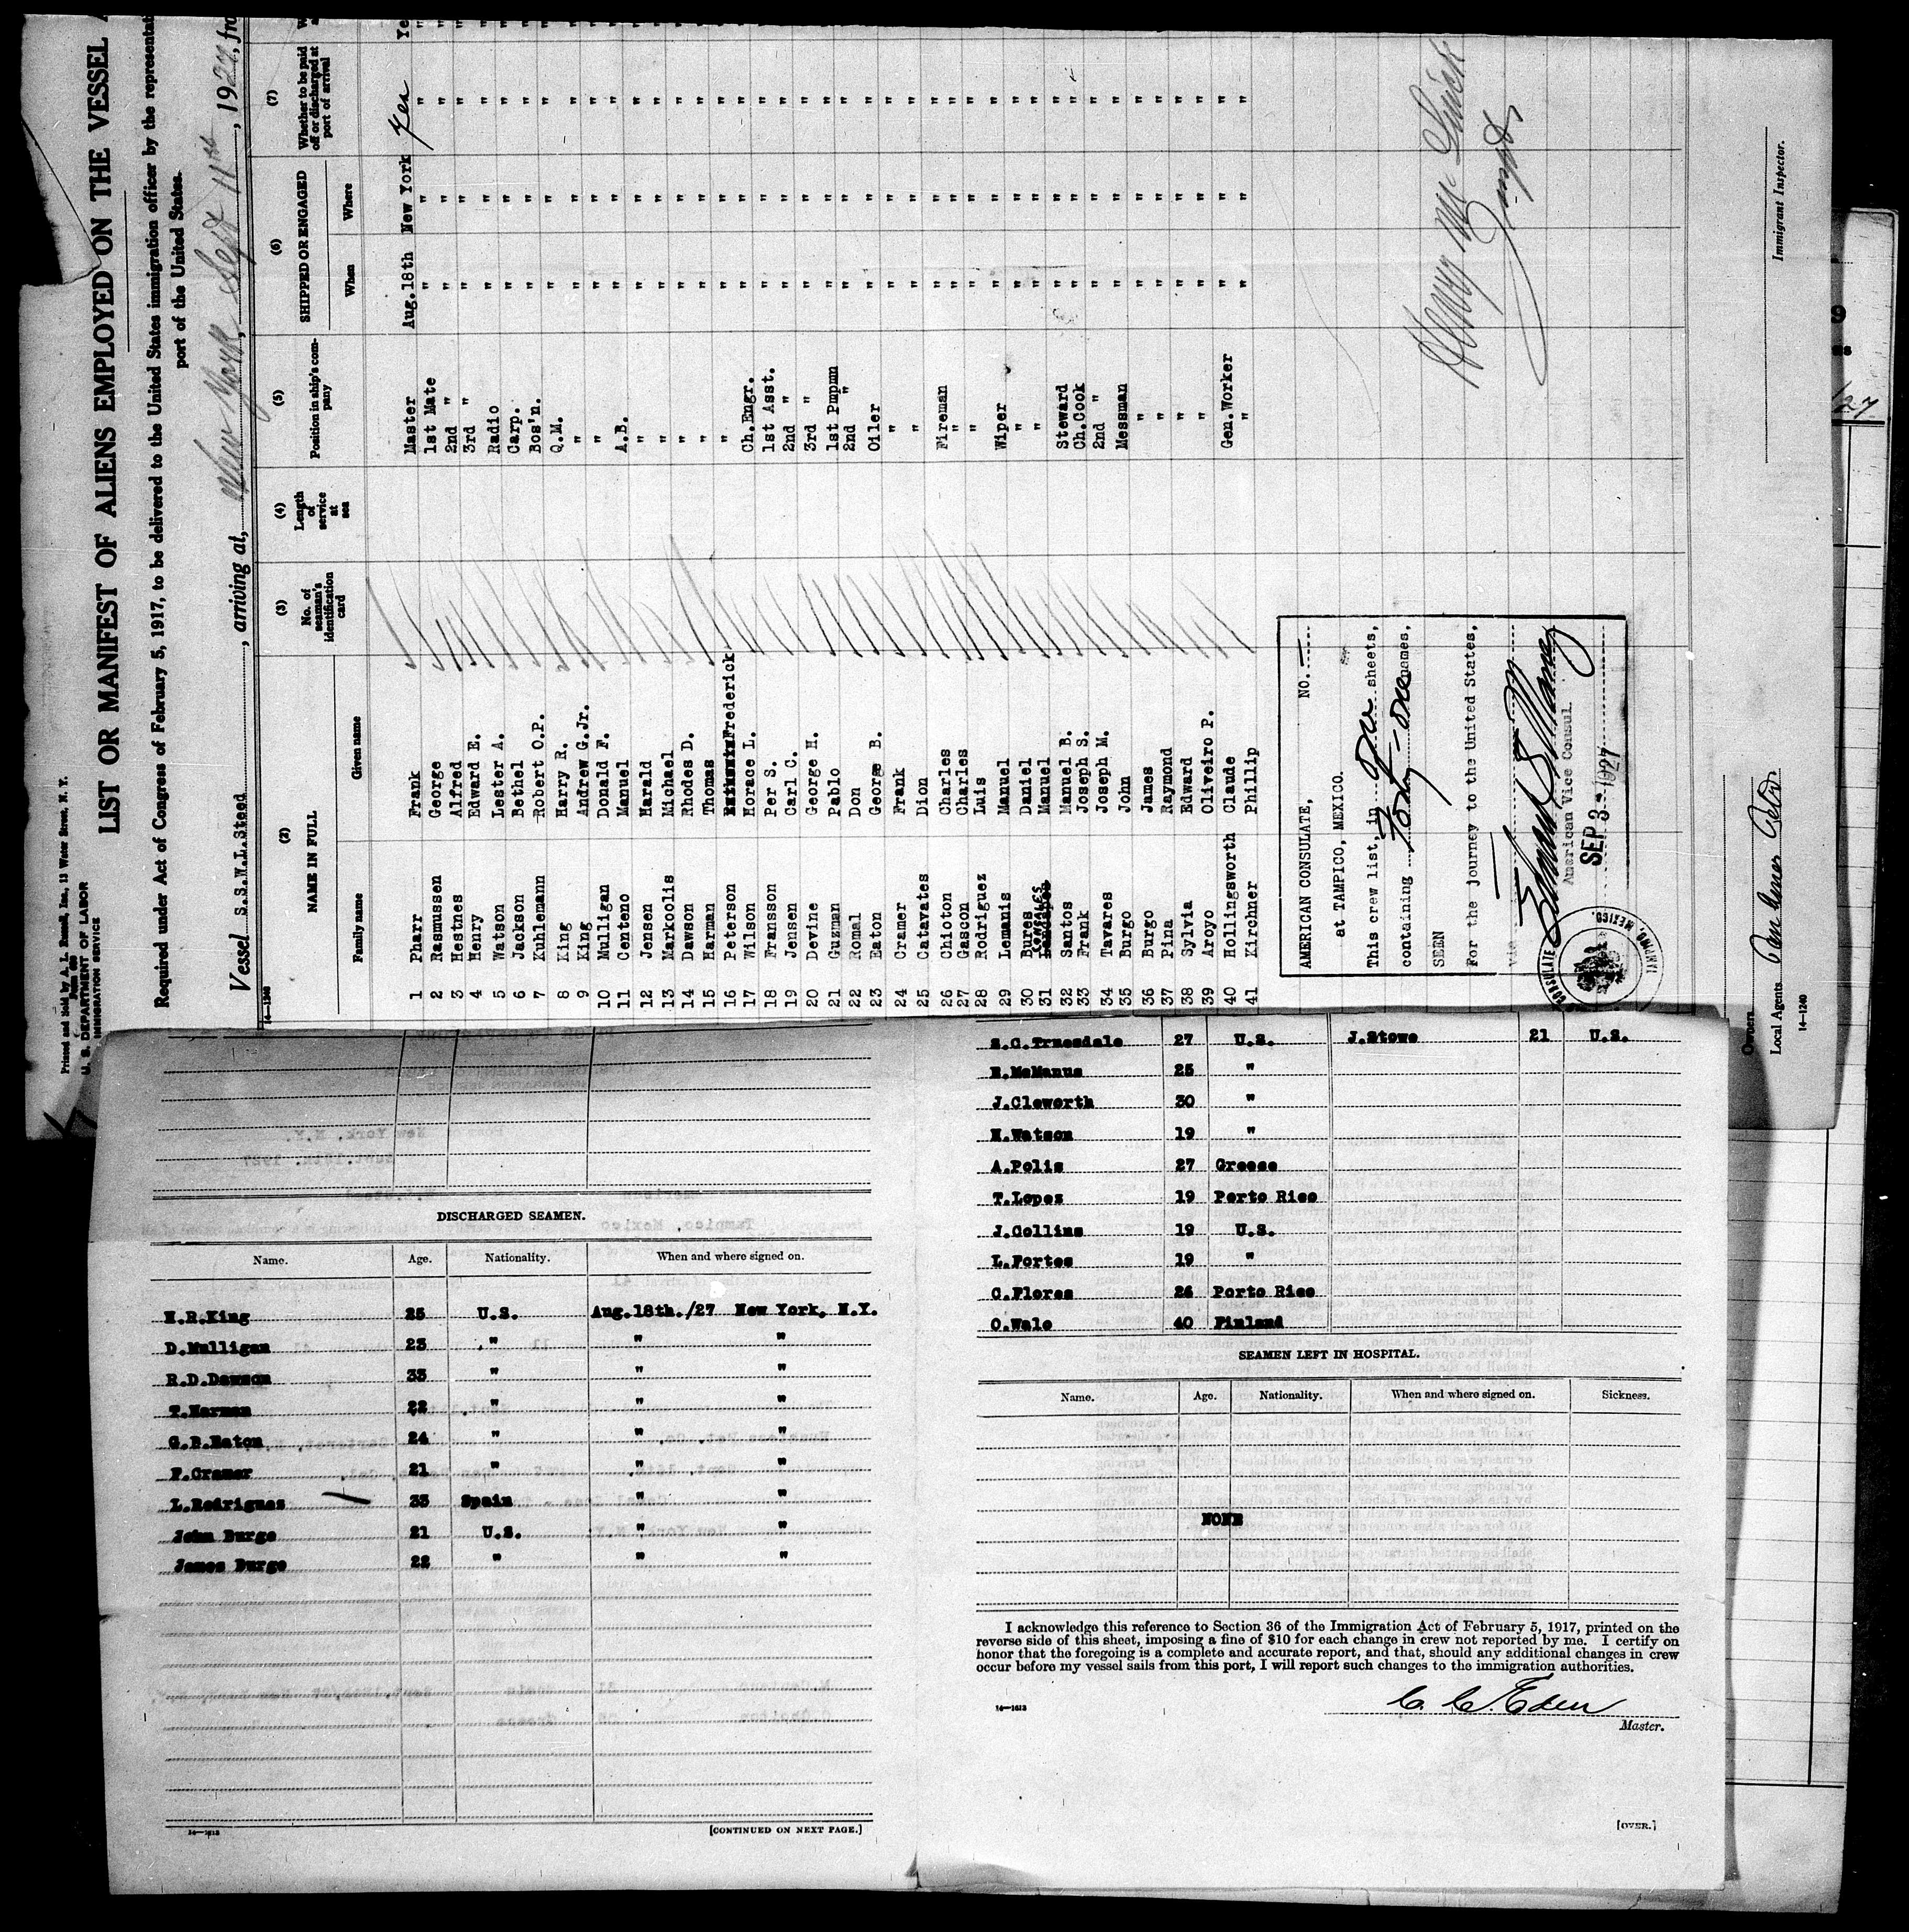 Printed and Sold by A. L. Russell, Inc., 13 Water Street, N. Y.
Form 680
U. S. DEPARTMENT OF LABOR
IMMIGRATION SERVICE
LIST OR MANIFEST OF ALIENS EMPLOYED ON THE VESSEL
Required under Act of Congress of February 5, 1917, to be delivered to the United States immigration officer by the representat
port of the United States.
Vessel S.S.W.L.Steed, arriving at, New York, Sept 11th, 1927, fro
14—1240
(2) (3) (4) (5) (6) (7)
NAME IN FULL No. of seaman's identification card Length of service at sea Position in ship's company SHIPPED OR ENGAGED Whether to be paid off or discharged at port of arrival
Family name Given name When Where
1 Pharr Frank Master Aug.18th New York Yes Ye
2 Rasmussen George 1st Mate " " "
3 Hestnes Alfred 2nd " " " "
4 Henry Edward E. 3rd " " " "
5 Watson Lester A. Radio " " "
6 Jackson Bethel Carp. " " "
7 Kuhlemann Robert O.P. Bos'n. " " "
8 King Harry R. Q.M. " " "
9 King Andrew G.Jr. " " " "
10 Mulligan Donald F. " " " "
11 Centeno Manuel A.B. " " "
12 Jensen Harald " " " "
13 Markoolis Mishael " " " "
14 Dawson Rhodes D. " " " "
15 Harman Thomas " " " "
16 Peterson Frederick " " " "
17 Wilson Horace L. Ch.Engr. " " "
18 Fransson Per S. 1st Asst. " " "
19 Jensen Carl C. 2nd " " " "
20 Devine George H. 3rd " " " "
21 Guzman Pablo 1st Pmpmn " " "
22 Ronal Don 2nd " " " "
23 Eaton George B. Oiler " " "
24 Cramer Frank " " " "
25 Catavates Dion " " " "
26 Chioton Charles Fireman " " "
27 Gascon Charles " " " "
28 Rodriguez Luis " " " "
29 Lemanis Manuel Wiper " " "
30 Bures Daniel " " " "
31 Manuel " " " "
32 Santos Manuel B. Steward " " "
33 Frank Joseph S. Ch.Cook " " "
34 Tavares Joseph M. 2nd " " " "
35 Burgo John Messman " " "
36 Burgo James " " " "
37 Pina Raymond " " " "
38 Sylvia Edward " " " "
39 Aroyo Oliveiro P. " " " "
40 Hollingsworth Claude Gen.Worker " " "
41 Kirchner Phillip " " " "
AMERICAN CONSULATE, NO.
at TAMPICO, MEXICO.
This crew list, in One sheets,
containing Forty-one names,
SEEN
For the journey to the United States,
via
American Vice Consul.
SEP 3 - 1927
CONSULATE
TAMPICO, MEXICO.
Immigrant Inspector.
Owners
Local Agents
14—1240
DISCHARGED SEAMEN.
Name. Age. Nationality. When and where signed on.
H.R.King 25 U.S. Aug.18th./27 New York, N.Y.
D.Mulligan 23 " " "
R.D.Dawson 33 " " "
T.Harman 22 " " "
G.B.Eaton 24 " " "
F.Cramer 21 " " "
L.Rodriguez 33 Spain " "
John Burgo 21 U.S. " "
James Burgo 22 " " "
14—1613
[CONTINUED ON NEXT PAGE.]
S.C.Truesdale 27 U.S. J.Stowe 21 U.S.
E.McManus 25 "
J.Cleworth 30 "
H.Watson 19 "
A.Polis 27 Greece
T.Lopez 19 Porto Rico
J.Collins 19 U.S.
L.Fortes 19 "
C.Flores 26 Porto Rico
O.Walo 40 Finland
SEAMEN LEFT IN HOSPITAL.
Name. Age. Nationality. When and where signed on. Sickness.
NONE
I acknowledge this reference to Section 36 of the Immigration Act of February 5, 1917, printed on the
reverse side of this sheet, imposing a fine of $10 for each change in crew not reported by me. I certify on
honor that the foregoing is a complete and accurate report, and that, should any additional changes in crew
occur before my vessel sails from this port, I will report such changes to the immigration authorities.
C. C. Eden
14—1613
Master.
[OVER.]